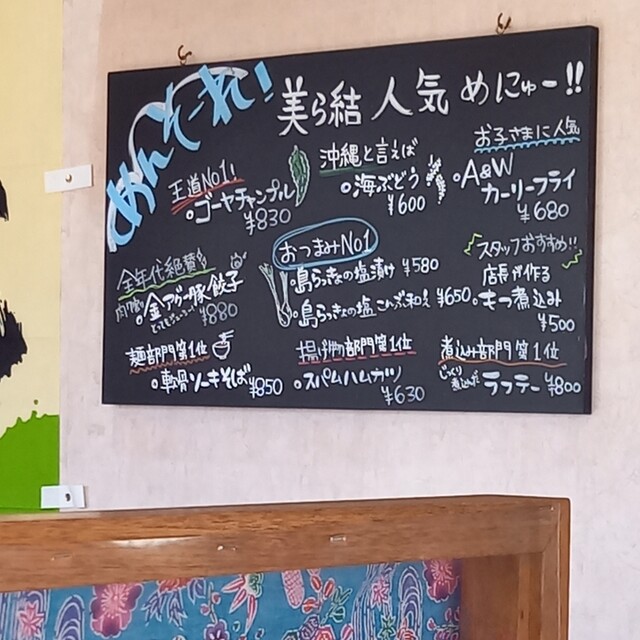 めんそーれ!
美ら結 人気 めにゅー!!
王道No1!
・ゴーヤチャンプル
¥830
沖縄と言えば
・海ぶどう
¥600
お子さまに人気
・A&W
カーリーフライ
¥680
全年代絶賛!
・金アグー豚餃子
とってもジューシー!
¥880
おつまみNo1
・島らっきょの塩漬け ¥580
・島らっきょの塩こんぶ和え ¥650
スタッフおすすめ!!
店長が作る
・もつ煮込み
¥500
麺部門第1位
・軟骨ソーキそば ¥850
揚げ物部門第1位
・スパムハムカツ
¥630
煮込み部門第1位
じっくり
煮込んだ
ラフテー ¥800